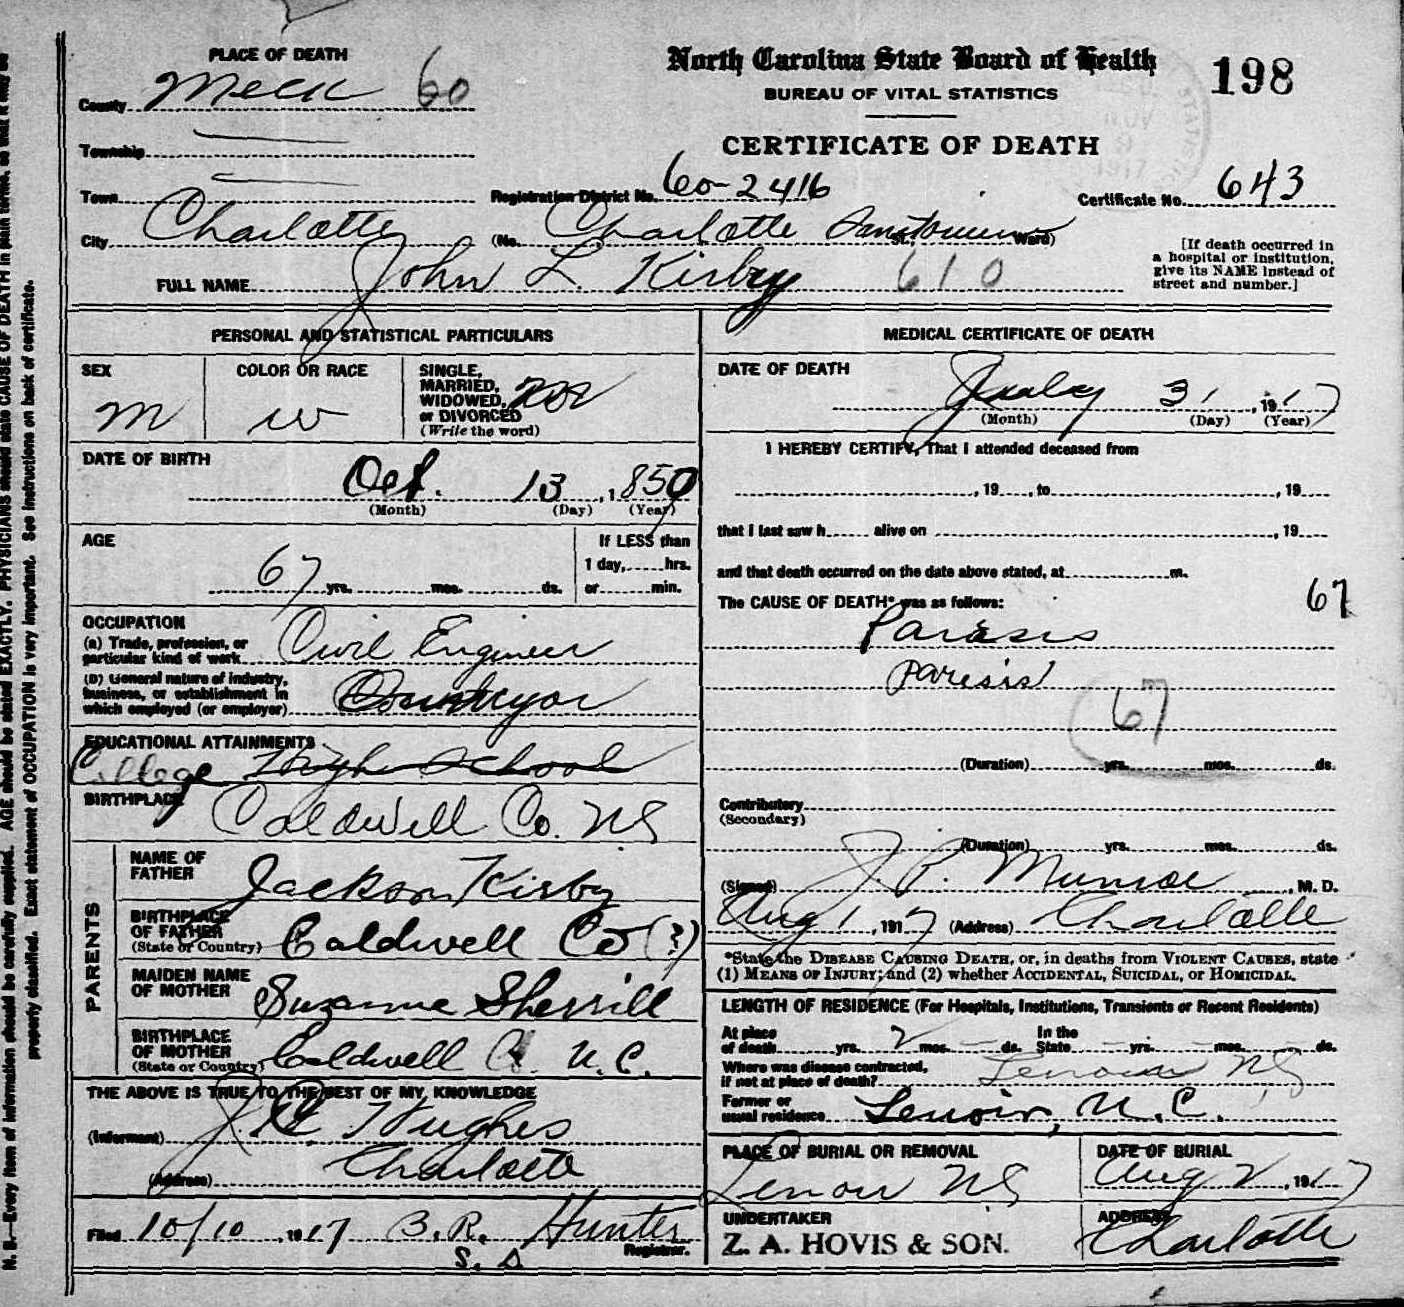 PLACE OF DEATH
County Meck 60
Township
Town
City Charlotte
North Carolina State Board of Health
BUREAU OF VITAL STATISTICS
CERTIFICATE OF DEATH
198
Registration District No. 60-2416
Certificate No. 643
(No. Charlotte Sanatorium St., Ward)
[If death occurred in
a hospital or institution,
give its NAME instead of
street and number.]
FULL NAME John L. Kirby 610
PERSONAL AND STATISTICAL PARTICULARS
SEX
M
COLOR OR RACE
W
SINGLE,
MARRIED,
WIDOWED,
or DIVORCED
(Write the word)
DATE OF BIRTH
Oct. 13, 1850
(Month) (Day) (Year)
AGE
67 yrs. mos. ds.
If LESS than
1 day, hrs.
or min.
OCCUPATION
(a) Trade, profession, or
particular kind of work Civil Engineer
(b) General nature of industry,
business, or establishment in
which employed (or employer)
EDUCATIONAL ATTAINMENTS
College High School
BIRTHPLACE Caldwell Co. NC
PARENTS
NAME OF
FATHER Jackson Kirby
BIRTHPLACE
OF FATHER
(State or Country) Caldwell Co (?)
MAIDEN NAME
OF MOTHER Suzanne Sherrill
BIRTHPLACE
OF MOTHER
(State or Country) Caldwell Co. N.C.
THE ABOVE IS TRUE TO THE BEST OF MY KNOWLEDGE
(Informant) J. C. Hughes
(Address) Charlotte
Filed 10/10 1917 B. R. Hunter
Registrar.
S. D
MEDICAL CERTIFICATE OF DEATH
DATE OF DEATH
July 31, 1917
(Month) (Day) (Year)
I HEREBY CERTIFY, That I attended deceased from
, 19 , to , 19
that I last saw h alive on , 19
and that death occurred on the date above stated, at m.
The CAUSE OF DEATH* was as follows: 67
Paresis
Paresis
67
(Duration) yrs. mos. ds.
Contributory
(Secondary)
(Duration) yrs. mos. ds.
(Signed) J. P. Munroe, M. D.
Aug 1, 1917 (Address) Charlotte
*State the DISEASE CAUSING DEATH, or, in deaths from VIOLENT CAUSES, state
(1) MEANS OF INJURY; and (2) whether ACCIDENTAL, SUICIDAL, or HOMICIDAL.
LENGTH OF RESIDENCE (For Hospitals, Institutions, Transients or Recent Residents)
At place
of death yrs. 2 mos. — ds. In the
State — yrs. — mos. ds.
Where was disease contracted,
if not at place of death? Lenoir NC
Former or
usual residence Lenoir, N.C.
PLACE OF BURIAL OR REMOVAL
Lenoir NC
DATE OF BURIAL
Aug 2, 1917
UNDERTAKER
Z. A. HOVIS & SON.
ADDRESS
Charlotte
N. B.—Every item of information should be carefully supplied. AGE should be stated EXACTLY. PHYSICIANS should state CAUSE OF DEATH in plain terms, so that it may be
properly classified. Exact statement of OCCUPATION is very important. See instructions on back of certificate.